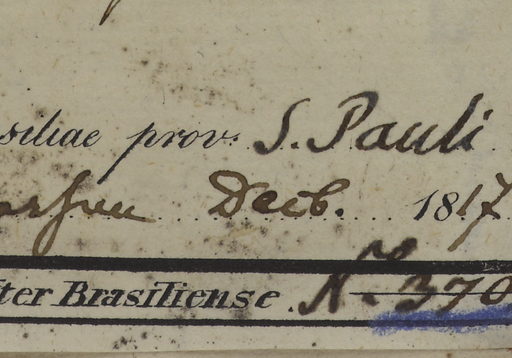 siliae prov: S. Pauli
Decb. 1817
ter Brasiliense. No 370